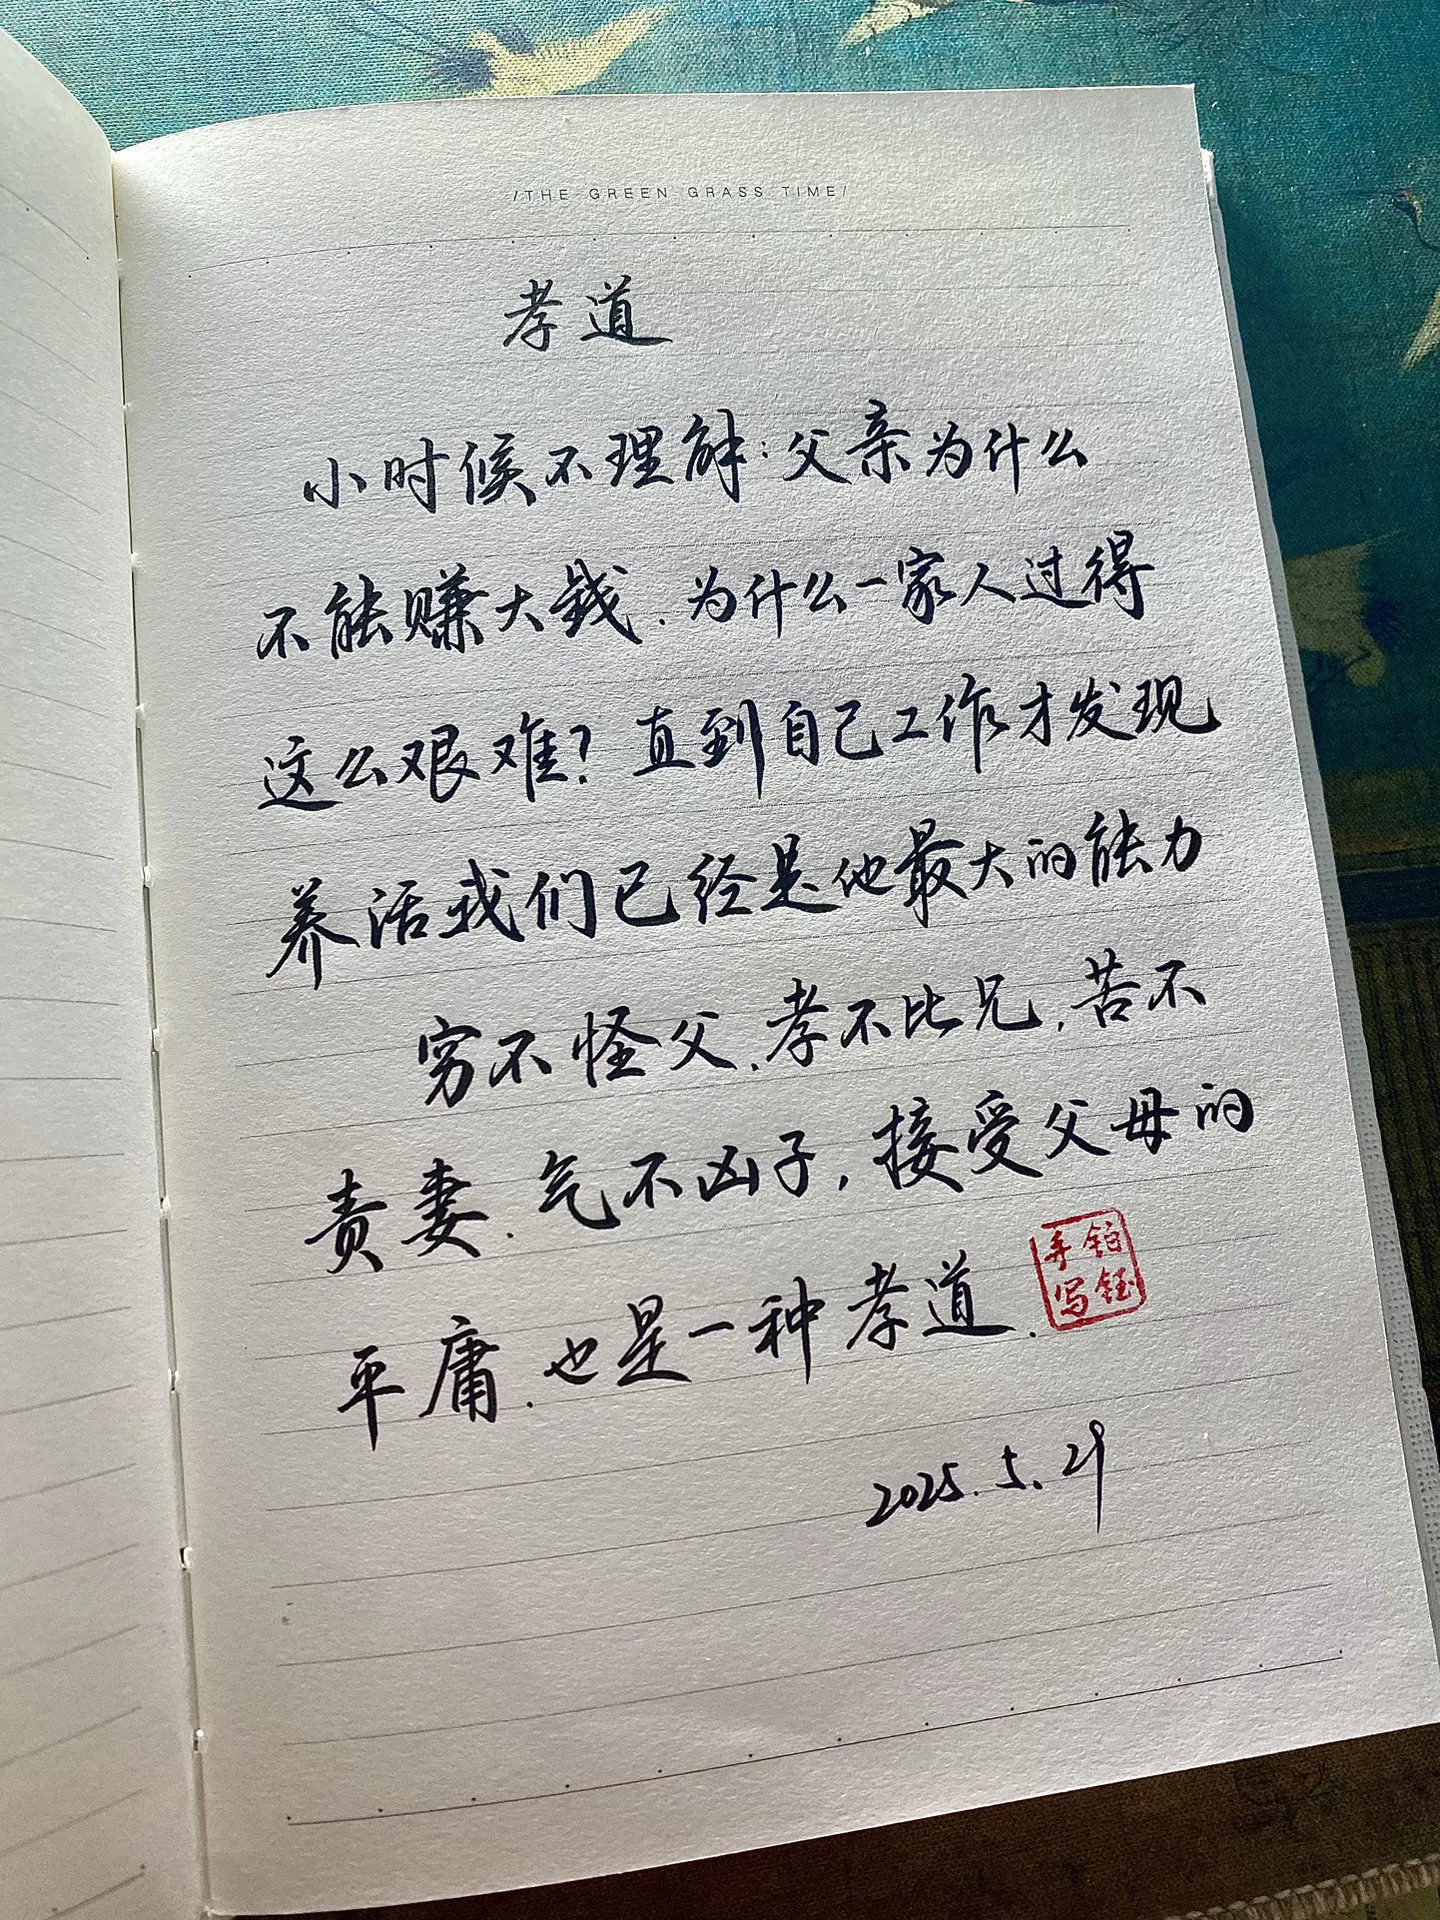 /THE GREEN GRASS TIME/
孝道
小时候不理解:父亲为什么
不能赚大钱.为什么一家人过得
这么艰难?直到自己工作才发现
养活我们已经是他最大的能力
穷不怪父.孝不比兄.苦不
责妻.气不凶子,接受父母的
平庸.也是一种孝道.
铂钰
手写
2025.5.29